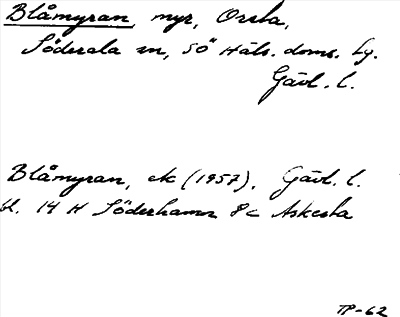 Blåmyran, myr, Orsta,
Söderala sn, SÖ Häls. doms. Lg.
Gävl. l.
Blåmyran, ek (1957). Gävl. l.
bl. 14 H Söderhamn 8c Askesta
TP-62